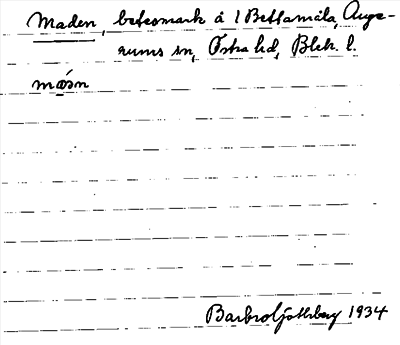 Maden, betesmark å 1 Bettamåla, Auge-
rums sn, Östra hd, Blek. l.
mæ̀ɔn
Barbro Ljothberg 1934